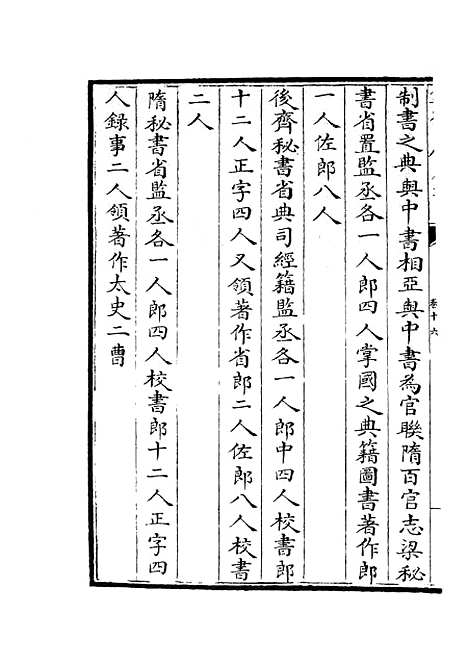 制書之典與中書相亞與中書為官聯隋百官志梁秘
書省置監丞各一人郎四人掌國之典籍圖書著作郎
一人佐郎八人
後齊秘書省典司經籍監丞各一人郎中四人校書郎
十二人正字四人又領著作省郎二人佐郎八人校書
二人
隋秘書省監丞各一人郎四人校書郎十二人正字四
人録事二人領著作太史二曹
卷十六